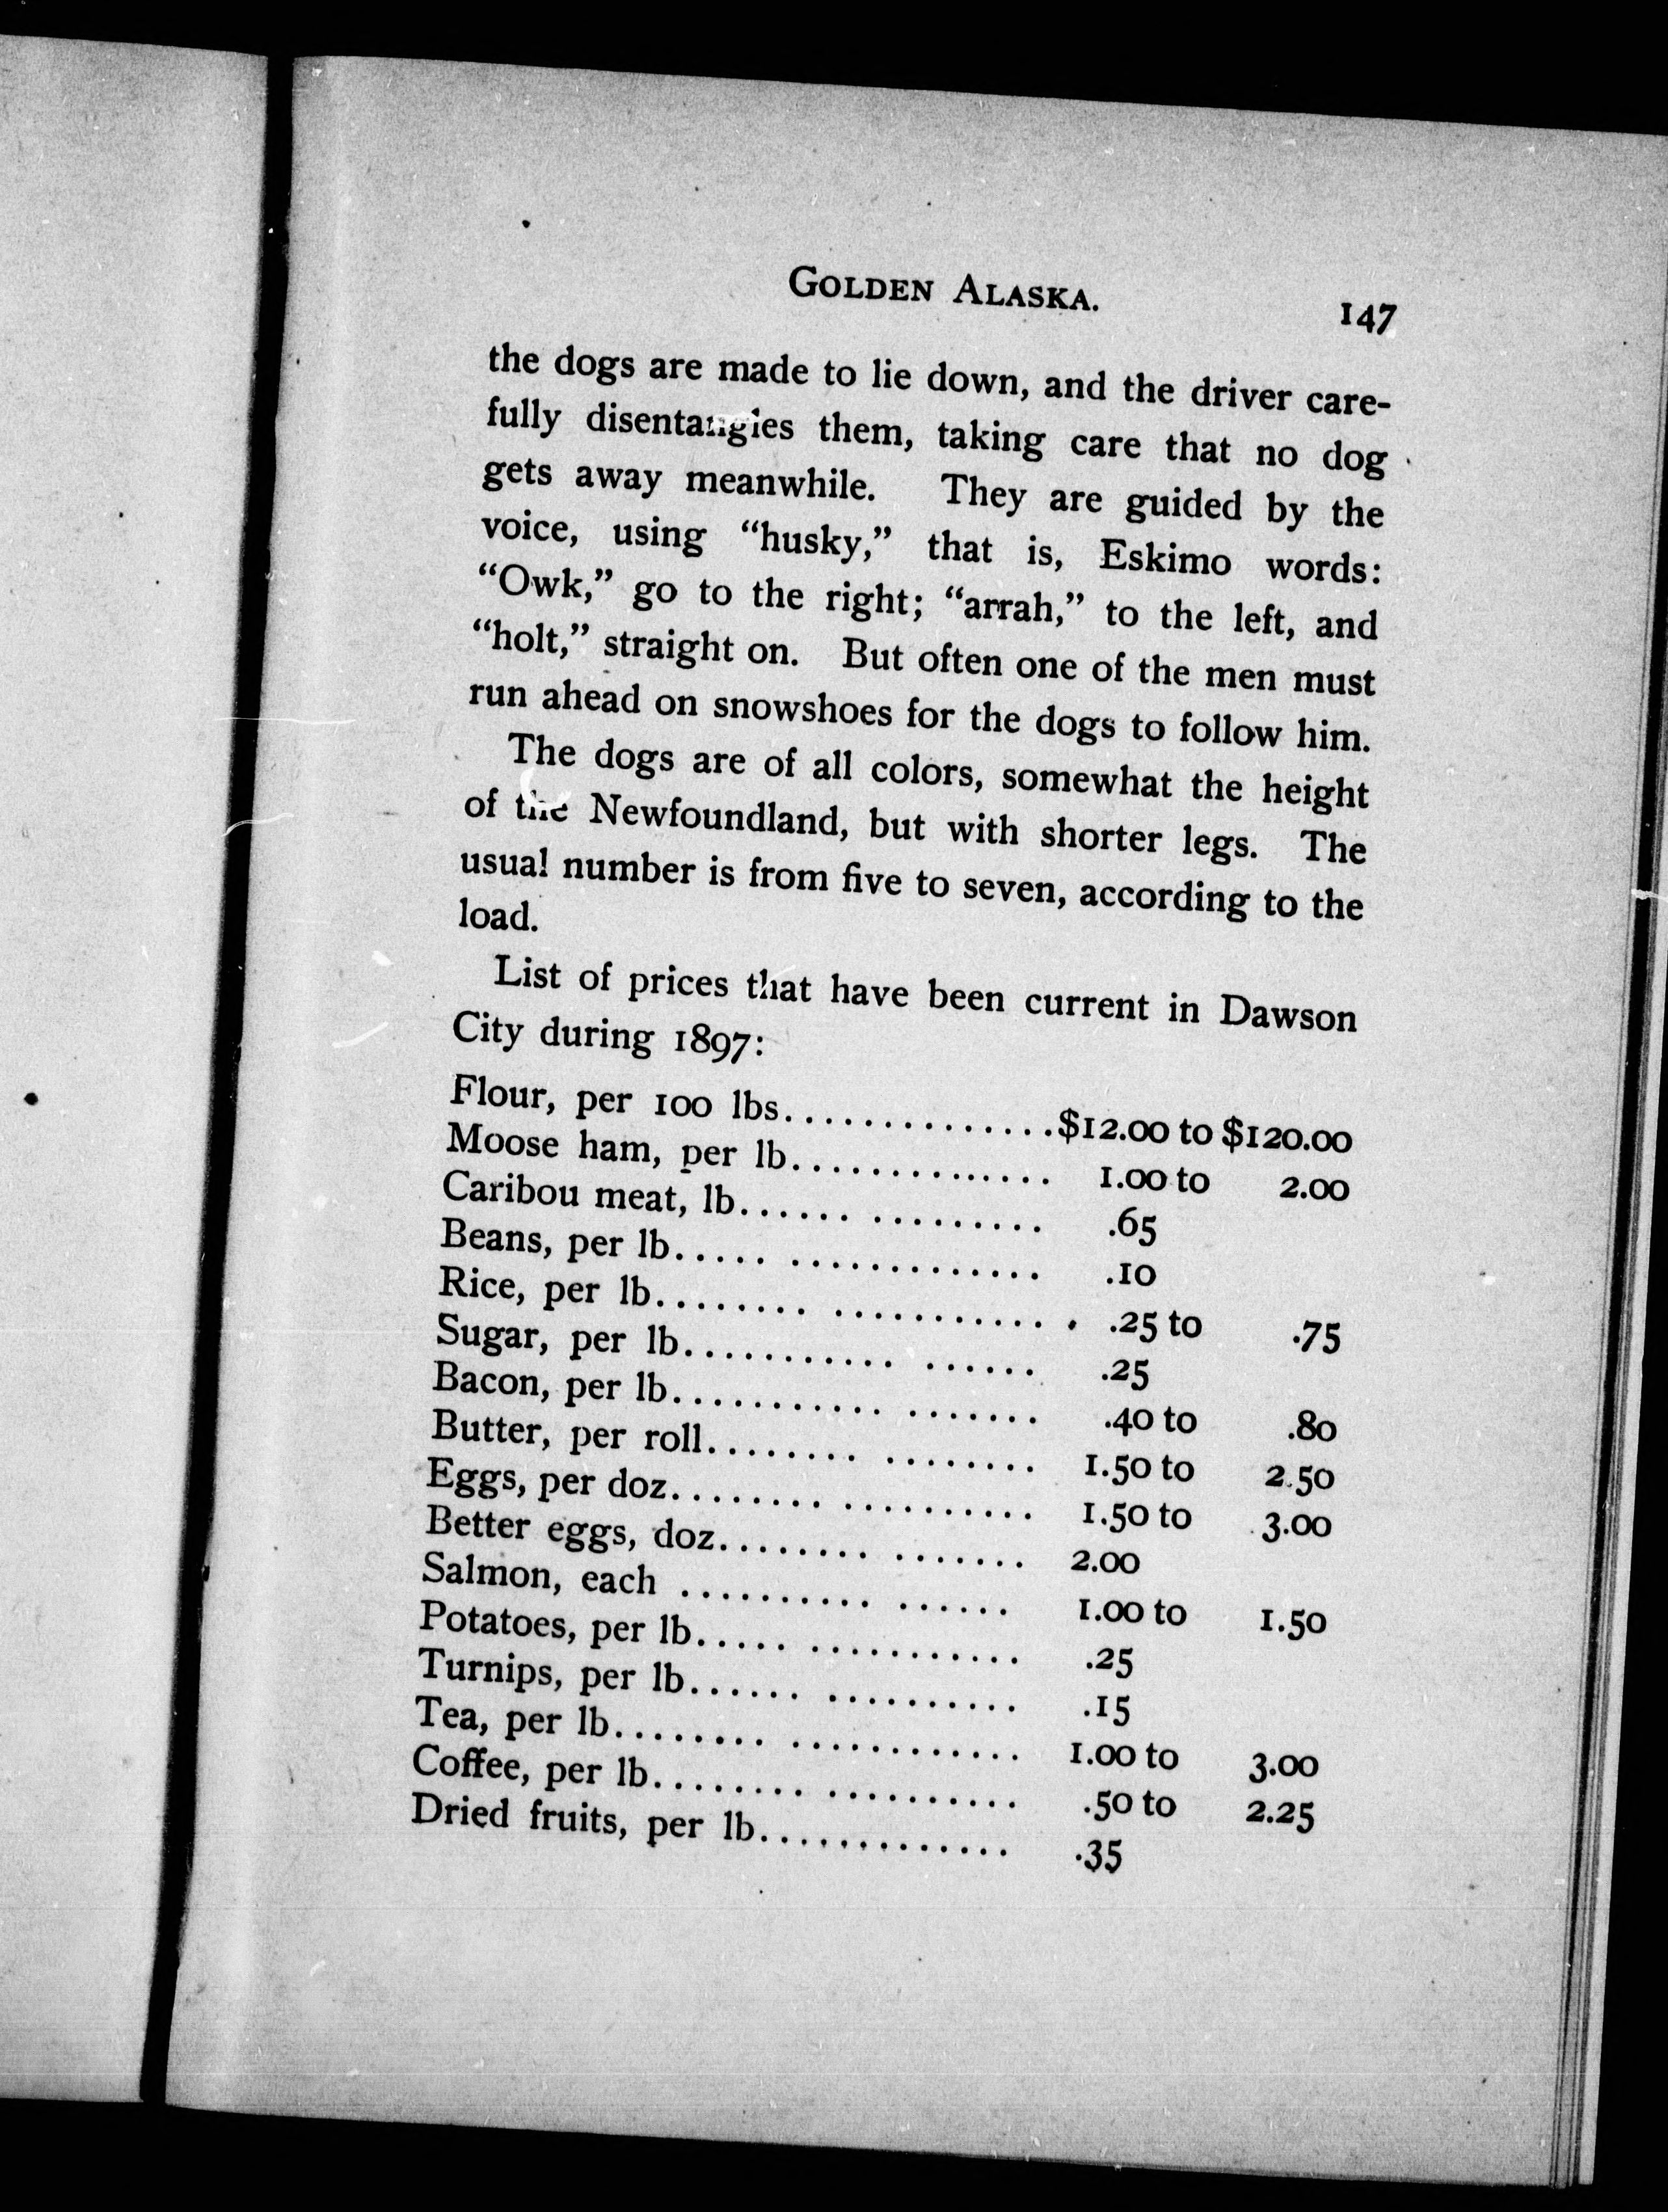 GOLDEN ALASKA. 147
the dogs are made to lie down, and the driver care-
fully disentangles them, taking care that no dog
gets away meanwhile. They are guided by the
voice, using “husky,” that is, Eskimo words:
“Owk,” go to the right; “arrah,” to the left, and
“holt,” straight on. But often one of the men must
run ahead on snowshoes for the dogs to follow him.
The dogs are of all colors, somewhat the height
of the Newfoundland, but with shorter legs. The
usual number is from five to seven, according to the
load.
List of prices that have been current in Dawson
City during 1897:
Flour, per 100 lbs..............$12.00 to $120.00
Moose ham, per lb............. 1.00 to 2.00
Caribou meat, lb...... ......... .65
Beans, per lb..... ............. .10
Rice, per lb........ ............ .25 to .75
Sugar, per lb........... ...... .25
Bacon, per lb........... ....... .40 to .80
Butter, per roll........ ........ 1.50 to 2.50
Eggs, per doz........ .......... 1.50 to 3.00
Better eggs, doz........ ....... 2.00
Salmon, each .......... ...... 1.00 to 1.50
Potatoes, per lb..... ........... .25
Turnips, per lb...... .......... .15
Tea, per lb........ ............ 1.00 to 3.00
Coffee, per lb........ .......... .50 to 2.25
Dried fruits, per lb............. .35